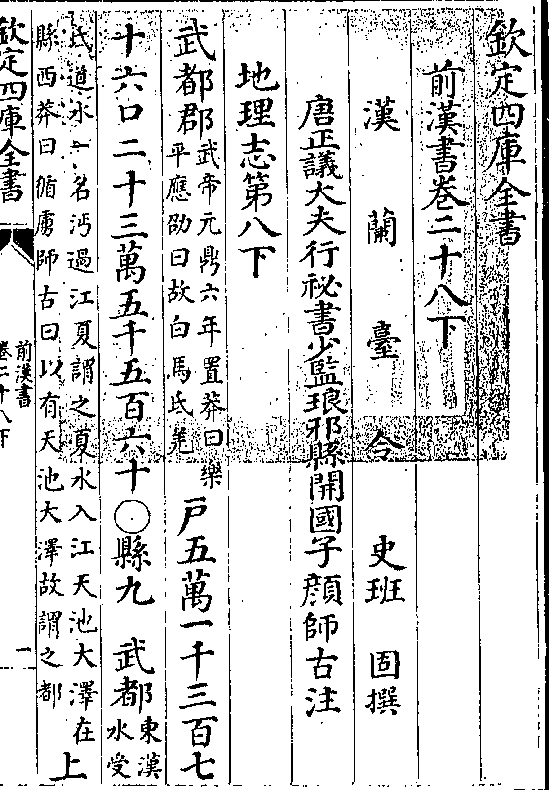 欽定四庫全書
前漢書卷二十八下
漢 蘭 臺 令 史班 固撰
唐正議大夫行祕書少監琅邪縣開國子顔師古注
地理志第八下
武都郡武帝元鼎六年置莽曰樂平應劭曰故白馬氐羌戸五萬一千三百七
十六口二十三萬五千五百六十〇縣九 武都東漢水受
氐道水一名沔過江夏謂之夏水入江天池大澤在縣西莽曰循虜師古曰以有天池大澤故謂之都 上
欽定四庫全書
前漢書
卷二十八下
一